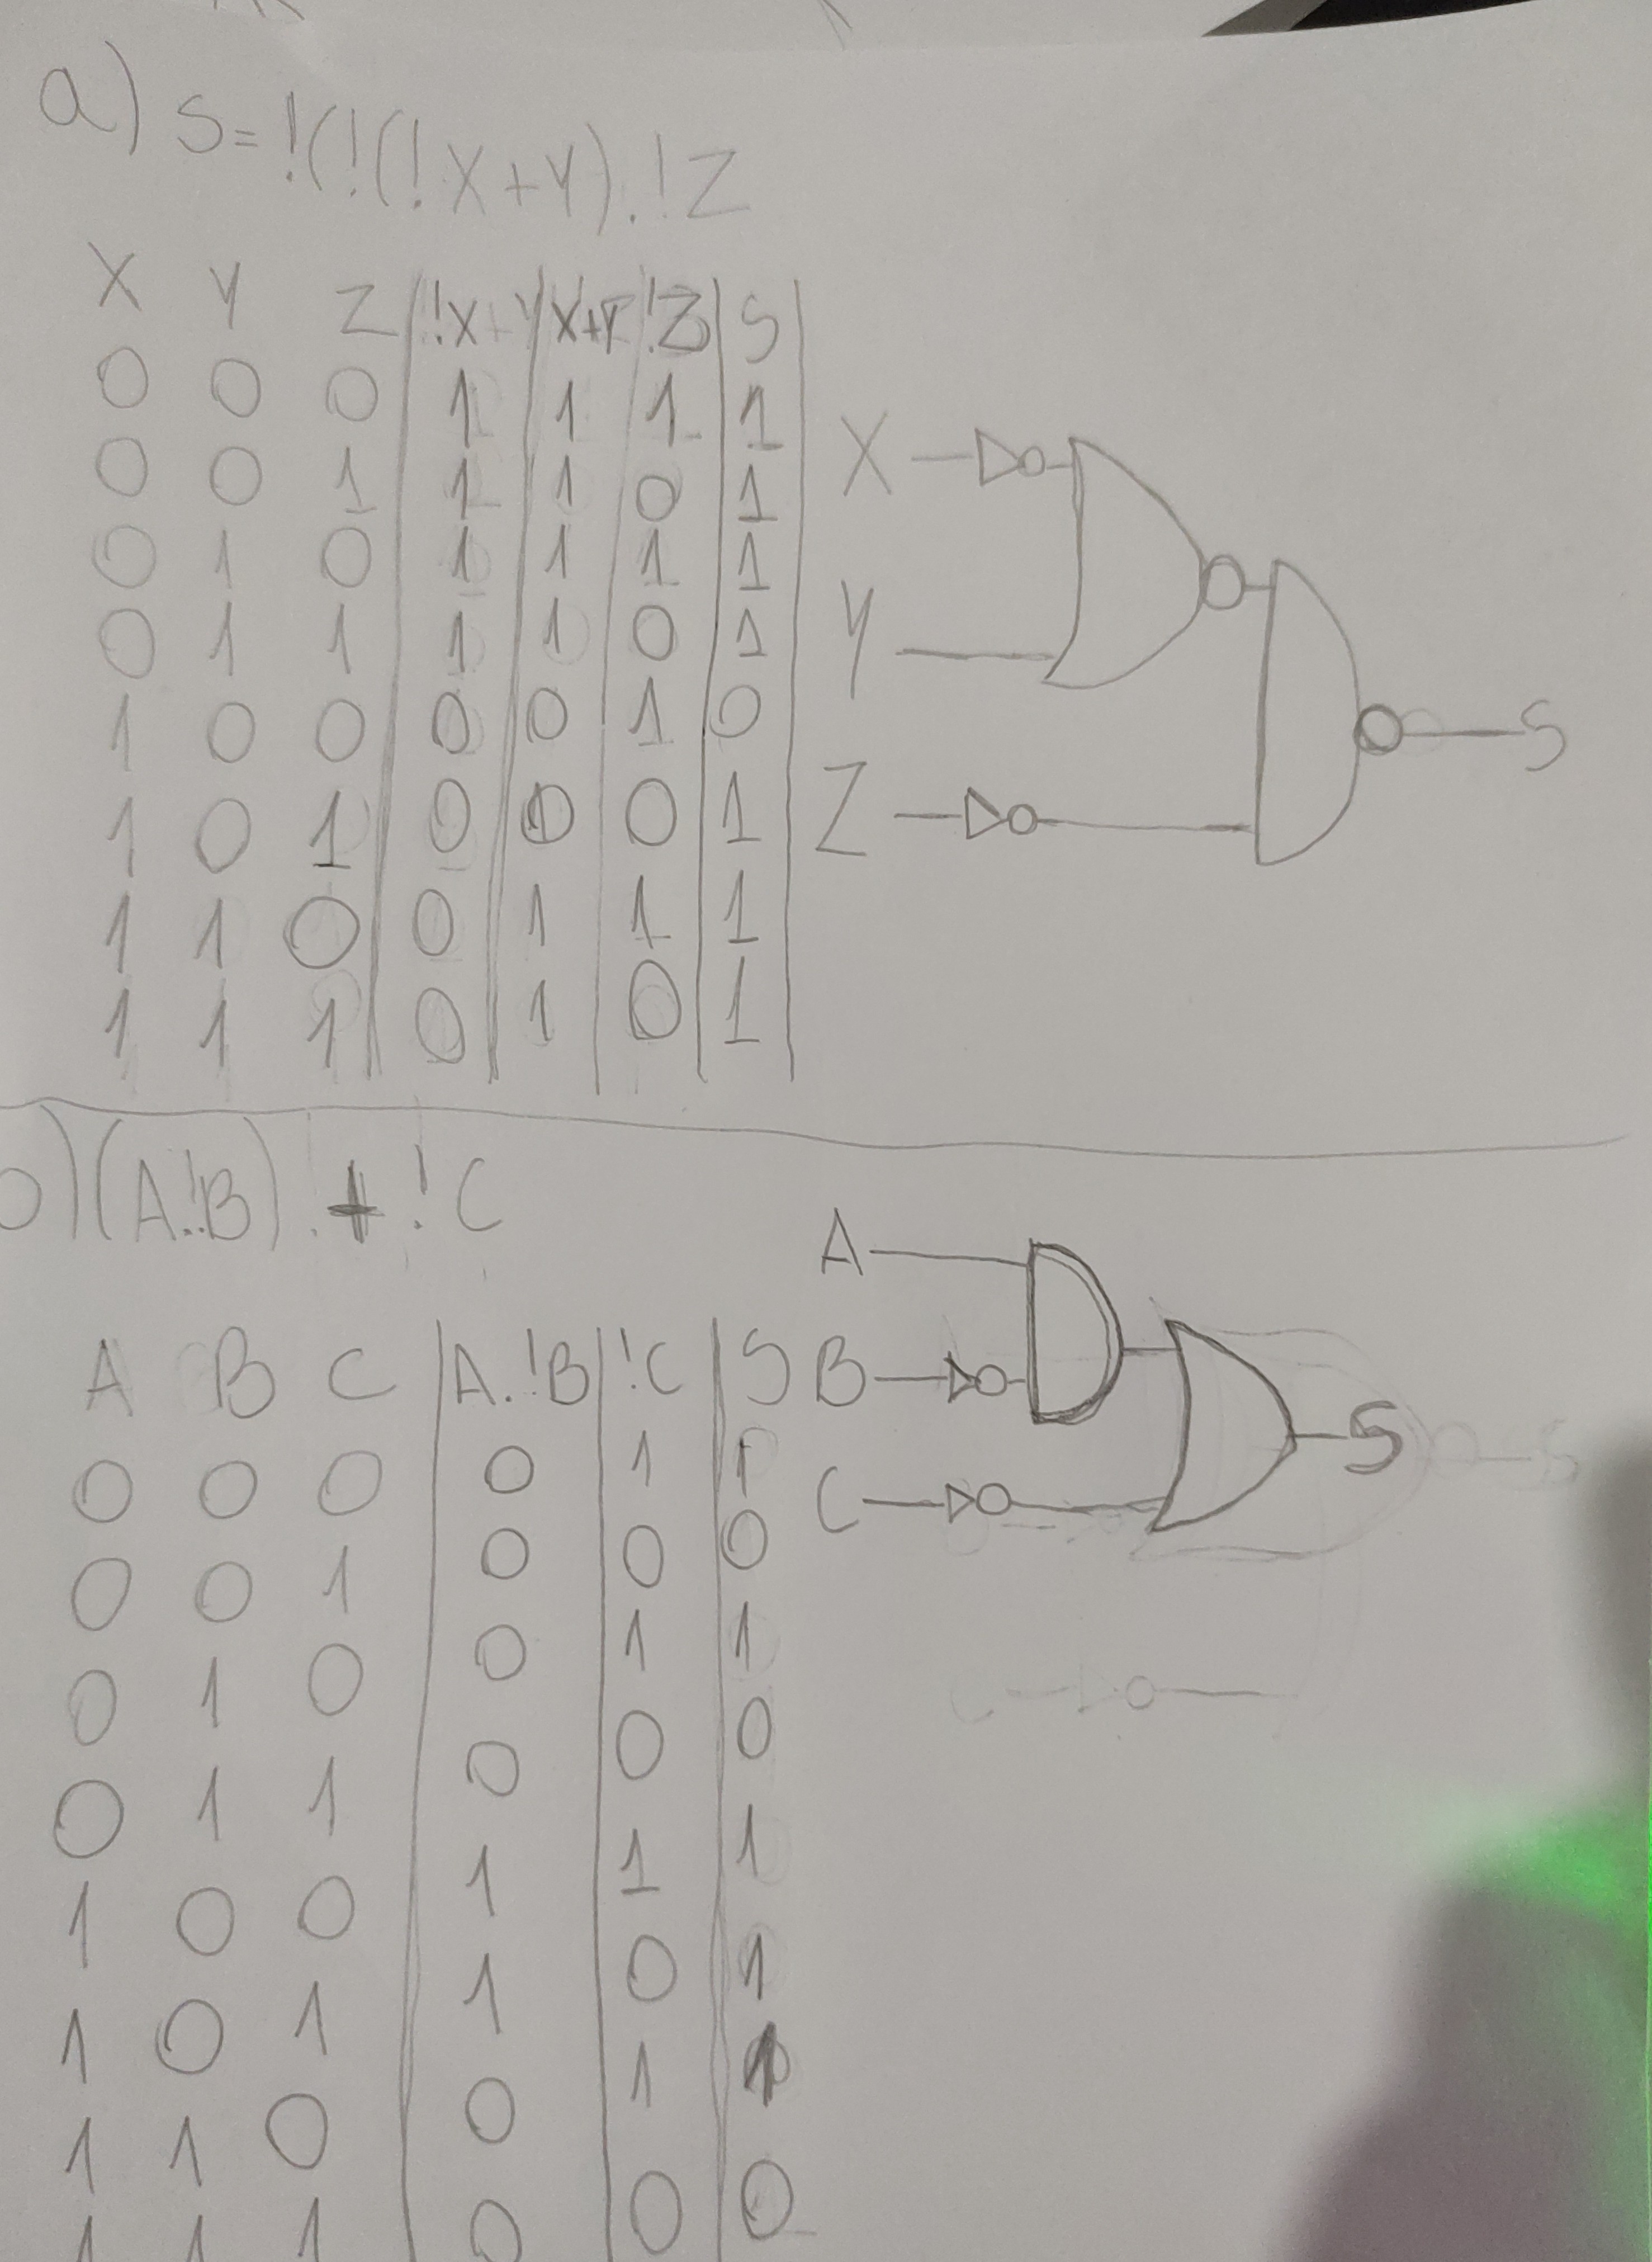 a) S=!(!(!X+Y).!Z
X Y Z !X X+Y !Z S
0 0 0 1 1 1 1
0 0 1 1 1 0 1
0 1 0 1 1 1 1
0 1 1 1 1 0 1
1 0 0 0 0 1 0
1 0 1 0 0 0 1
1 1 0 0 1 1 1
1 1 1 0 1 0 1
X
Y
Z
S
(A.!B) + !C
A B C A.!B !C S
0 0 0 0 1 1
0 0 1 0 0 0
0 1 0 0 1 1
0 1 1 0 0 0
1 0 0 1 1 1
1 0 1 1 0 1
1 1 0 0 1 1
1 1 1 0 0 0
A
B
C
S